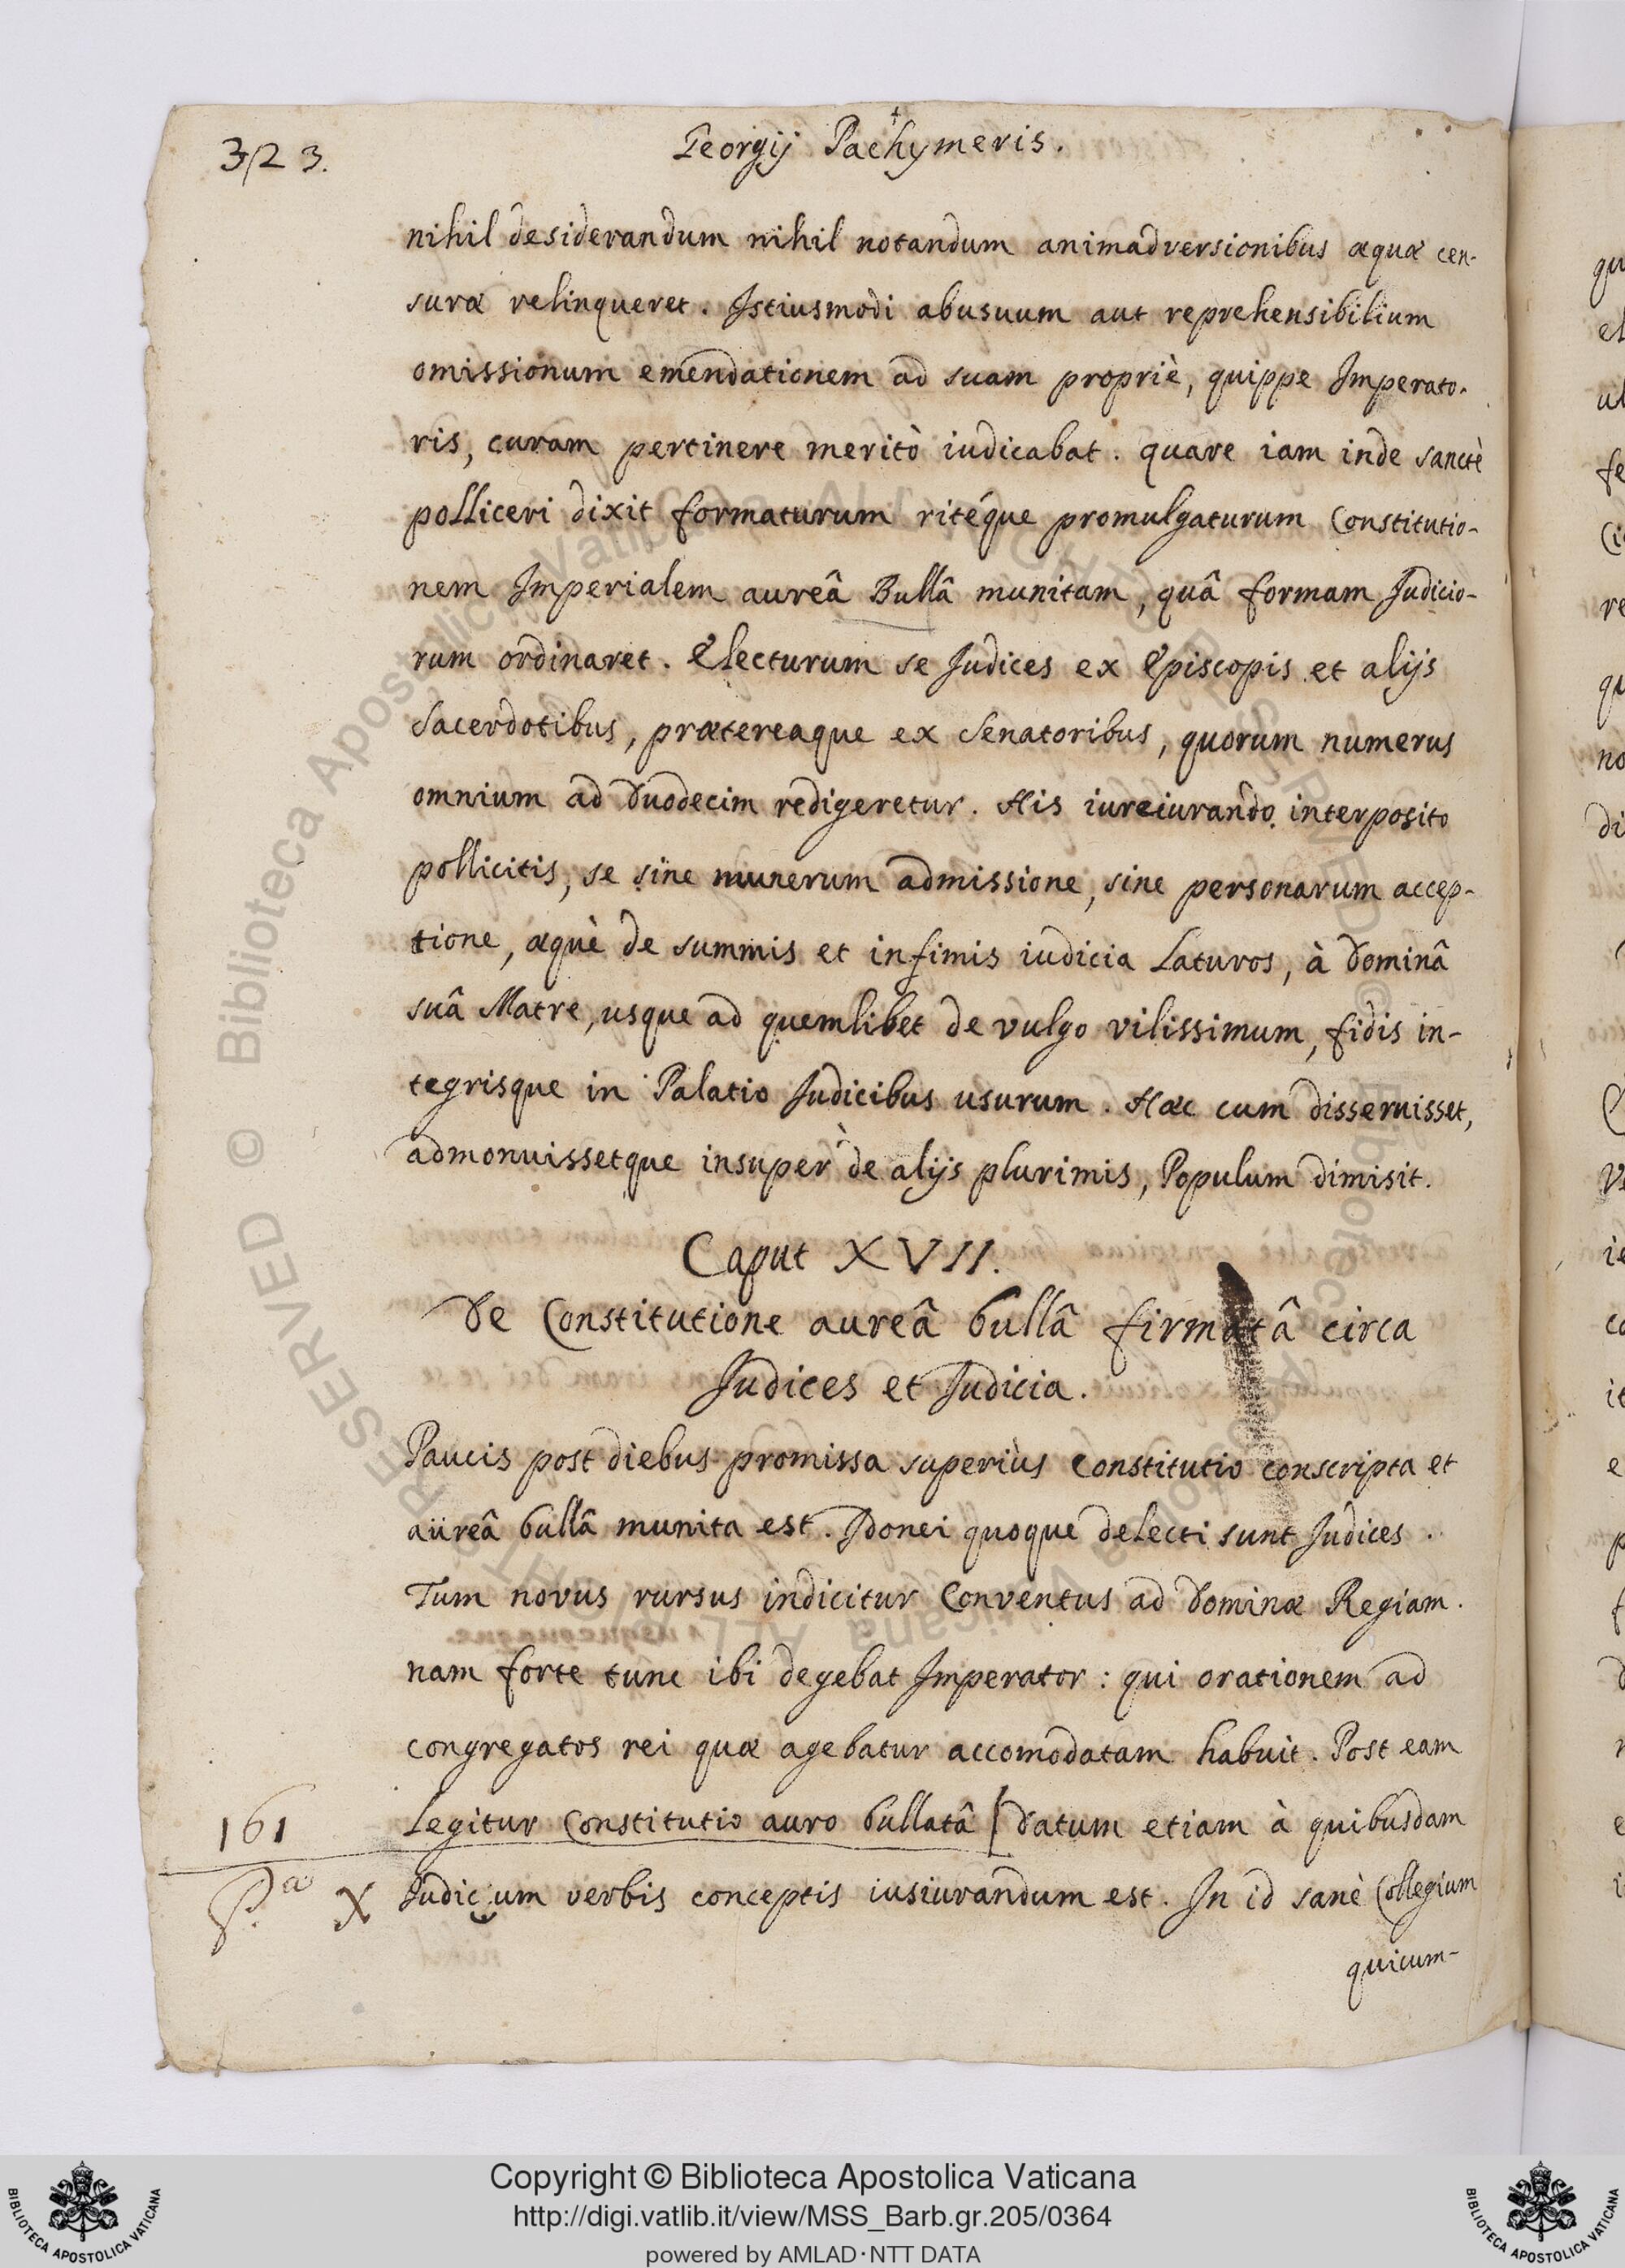 323.
Georgij Pachymeris.
nihil desiderandum nihil notandum animadversionibus æquæ cen-
suræ relinqueret. Istiusmodi abusuum aut reprehensibilium
omissionum emendationem ad suam propriè, quippe Imperato-
ris, curam pertinere meritò iudicabat. quare iam inde sanctè
polliceri dixit formaturum ritéque promulgaturum Constitutio-
nem Imperialem aureâ Bullâ munitam, quâ formam Judicio-
rum ordinaret. Electurum se Judices ex Episcopis et alijs
Sacerdotibus, prætereaque ex Senatoribus, quorum numerus
omnium ad duodecim redigeretur. His iureiurando interposito
pollicitis, se sine munerum admissione, sine personarum accep-
tione, æquè de summis et infimis iudicia Laturos, à Dominâ
suâ Matre, usque ad quemlibet de vulgo vilissimum, fidis in-
tegrisque in Palatio Judicibus usurum. Hæc cum disseruisset,
admonuissetque insuper de alijs plurimis, Populum dimisit.
Caput XVII.
De Constitutione aureâ bullâ firmatâ circa
Judices et Judicia.
Paucis post diebus promissa superiùs Constitutio conscripta et
aureâ bullâ munita est. Idonei quoque delecti sunt Judices.
Tum novus rursus indicitur Conventus ad Dominæ Regiam.
nam forte tunc ibi degebat Imperator: qui orationem ad
congregatos rei quæ agebatur accomodatam habuit. Post eam
161 Legitur Constitutio auro bullatâ [Datum etiam à quibusdam
X Judicum verbis conceptis iusiurandum est. In id sanè Collegium
quicum-
Copyright © Biblioteca Apostolica Vaticana
http://digi.vatlib.it/view/MSS_Barb.gr.205/0364
powered by AMLAD·NTT DATA
BIBLIOTECA APOSTOLICA VATICANA
BIBLIOTECA APOSTOLICA VATICANA